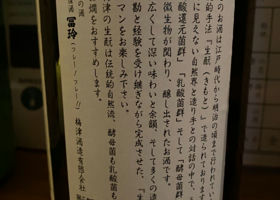 のお酒は江戸時代から明治の頃まで行われてい
的手法「生酛(きもと)」で造られております
に見えない自然界と造り手との対話の中で、
酸還元菌群」「乳酸菌群」そして「酵母菌群
微生物が関わり、醸し出されたお酒です。
広くして深い味わいと余韻、そして多くの造
勘と経験を受け継ぎながら完成させた、「生
マンをお楽しみ下さい。
津の生酛は伝統的自然流、酵母菌も乳酸菌も
燗をおすすめします。
の酒
冨玲(フレー!フレー!)
梅津酒造有限会社